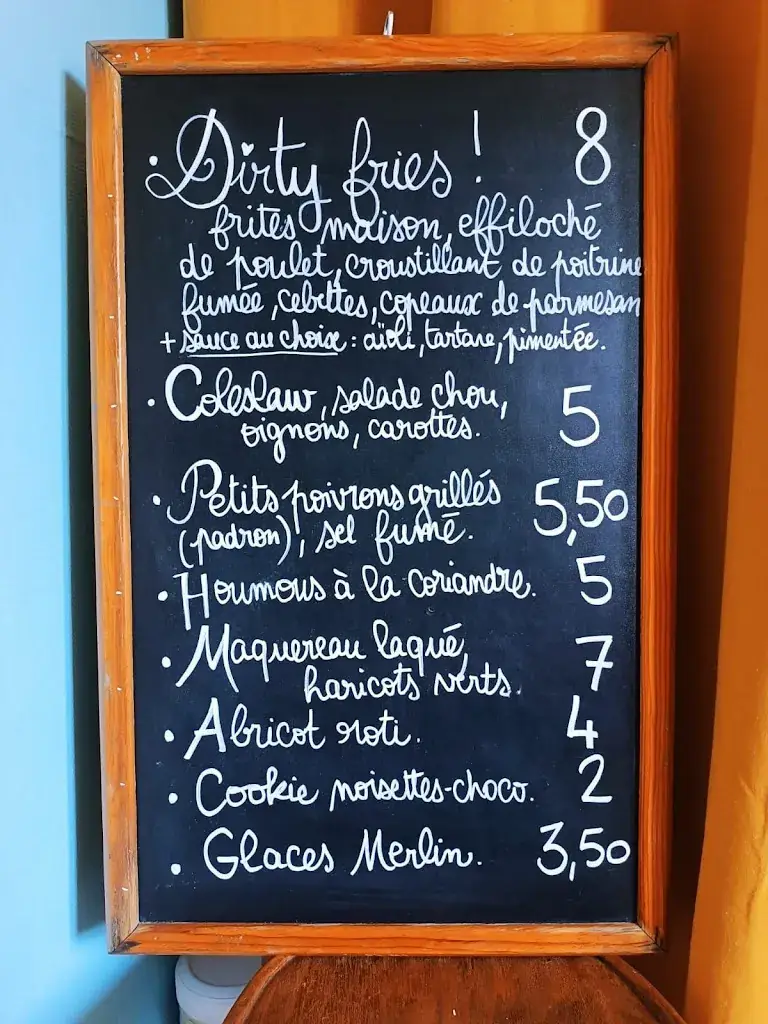 • Dirty fries ! 8
frites maison, effiloché
de poulet, croustillant de poitrine
fumée, cebettes, copeaux de parmesan
+ sauce au choix : aïoli, tartare, pimentée.
• Coleslaw, salade chou, 5
oignons, carottes.
• Petits poivrons grillés 5,50
(padron), sel fumé.
• Houmous à la coriandre. 5
• Maquereau laqué, 7
haricots verts.
• Abricot roti. 4
• Cookie noisettes-choco. 2
• Glaces Merlin. 3,50